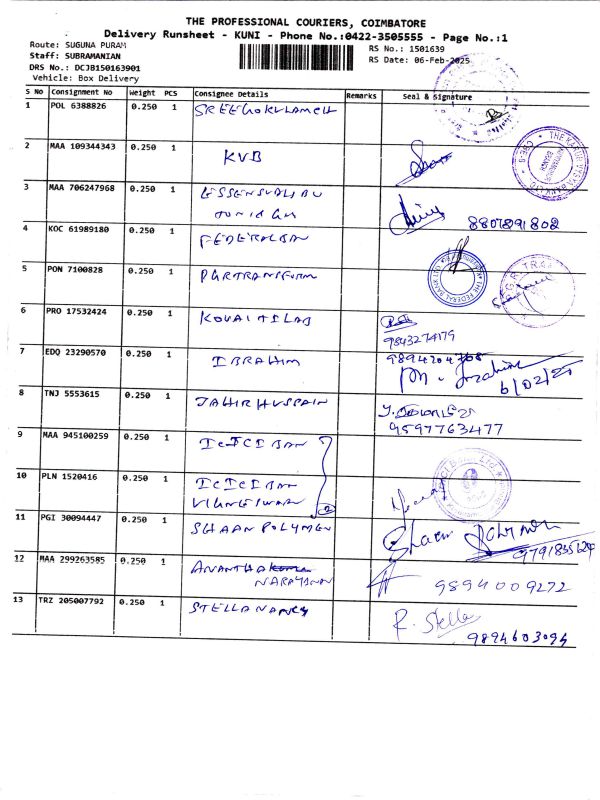 THE PROFESSIONAL COURIERS, COIMBATORE
Delivery Runsheet - KUNI - Phone No.:0422-3505555 - Page No.:1
Route: SUGUNA PURAM
RS No.: 1501639
Staff: SUBRAMANIAN
RS Date: 06-Feb-2025
DRS No.: DCJB150163901
Vehicle: Box Delivery
S No Consignment No Weight PCS Consignee Details Remarks Seal & Signature
1 POL 6388826 0.250 1 SREEGOKULAMCH
2 MAA 109344343 0.250 1 KVB
3 MAA 706247968 0.250 1 8807891802
4 KOC 61989180 0.250 1 FEDERALBAN
THE FEDERAL BANK LTD
5 PON 7100828 0.250 1 PGRTRANSFORM
6 PRO 17532424 0.250 1 KOVAI TILAB
9843274179
7 EDQ 23290570 0.250 1 IBRAHIM 9894204768
6/02/25
8 TNJ 5553615 0.250 1 JAHIR HUSSAIN
9597763477
9 MAA 945100259 0.250 1 ICICI BAN
10 PLN 1520416 0.250 1 ICICI BAN
VIGNESWAR
11 PGI 30094447 0.250 1 SHAAN POLYMER
9791835624
12 MAA 299263585 0.250 1 ANANTHA
NARAYANAN 9894009272
13 TRZ 205007792 0.250 1 STELLA NANCY R. Stella
9894603094